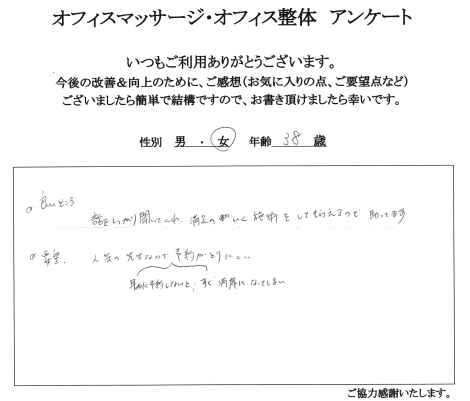 オフィスマッサージ・オフィス整体 アンケート
いつもご利用ありがとうございます。
今後の改善&向上のために、ご感想(お気に入りの点、ご要望点など)
ございましたら簡単で結構ですので、お書き頂けましたら幸いです。
性別 男 ・ 女 年齢 38 歳
○ 良いところ
話をしっかり聞いてくれ、満足の行く施術をしてもらえるので助ってます
○ 要望、 人気の先生なので予約がとりにくい
早めに予約しないと、すぐ満席になってしまい
ご協力感謝いたします。